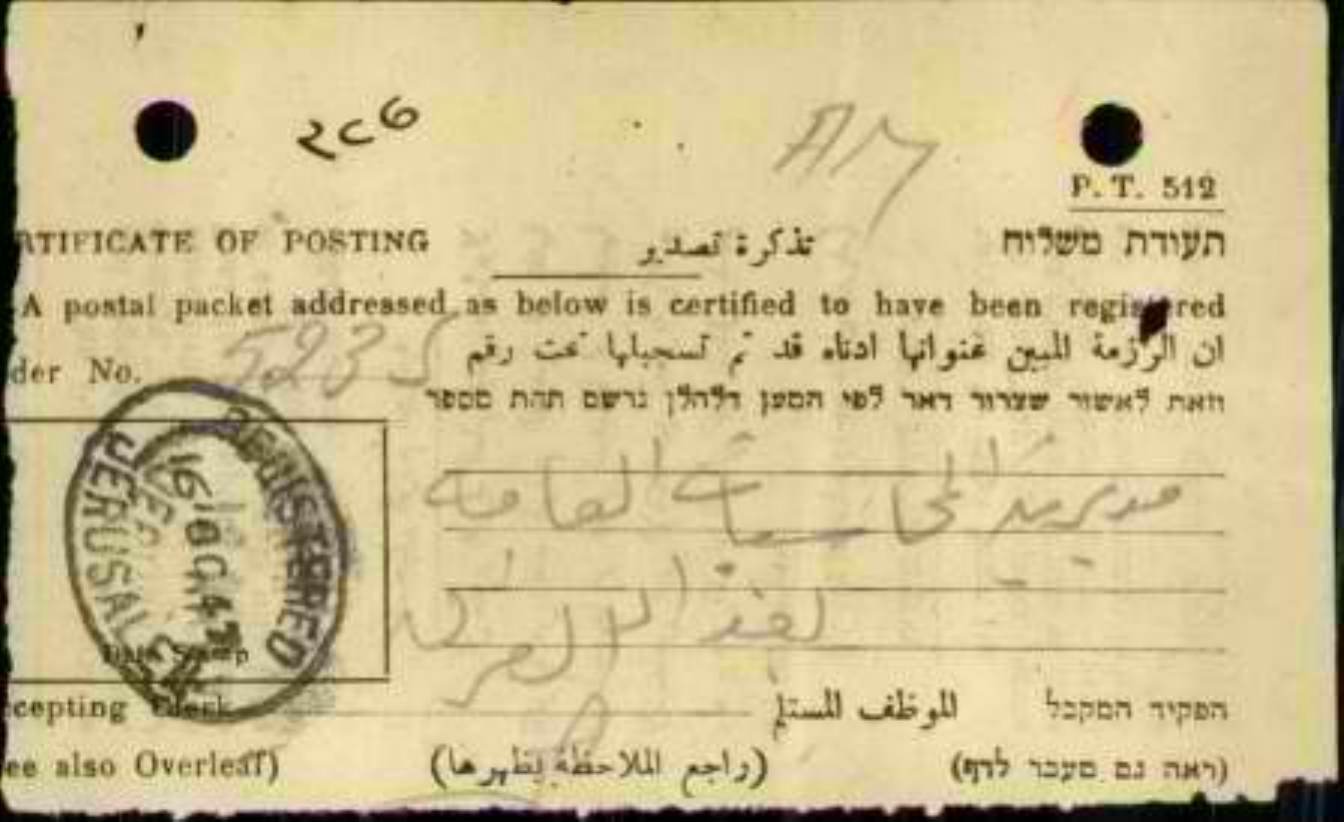 AM
P. T. 512
RTIFICATE OF POSTING تذكرة تصدير תעודת משלוח
A postal packet addressed as below is certified to have been registered
ان الرزمة المبين عنوانها ادناه قد تم تسجيلها تحت رقم
der No. 5235
וזאת לאשור שצרור דאר לפי המען דלהלן נרשם תחת מספר
مديرية المحاسبات العامة
بغداد العراق
REGISTERED
16 OC 47
JERUSALEM
Date Stamp
ccepting Clerk للموظف المستلم הפקיד המקבל
ee also Overleaf) (راجع الملاحظة بظهرها) (ראה גם מעבר לדף)